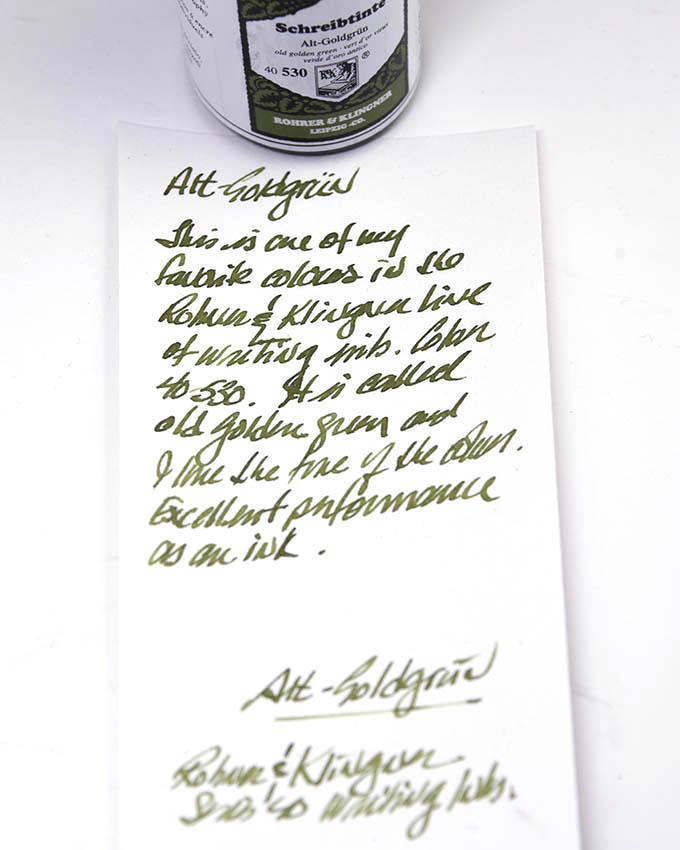 Schreibtinte
Alt-Goldgrün
old golden green · vert d'or vieux
verde d'oro antico
40 530
®
R&K
ROHRER & KLINGNER
LEIPZIG -CO.
Alt-Goldgrün
This is one of my
favorite colours in the
Rohrer & Klingner line
of writing inks. Color
40 530. It is called
old golden green and
I love the tone of the colour.
Excellent performance
as an ink.
Alt-Goldgrün
Rohrer & Klingner
writing Inks.